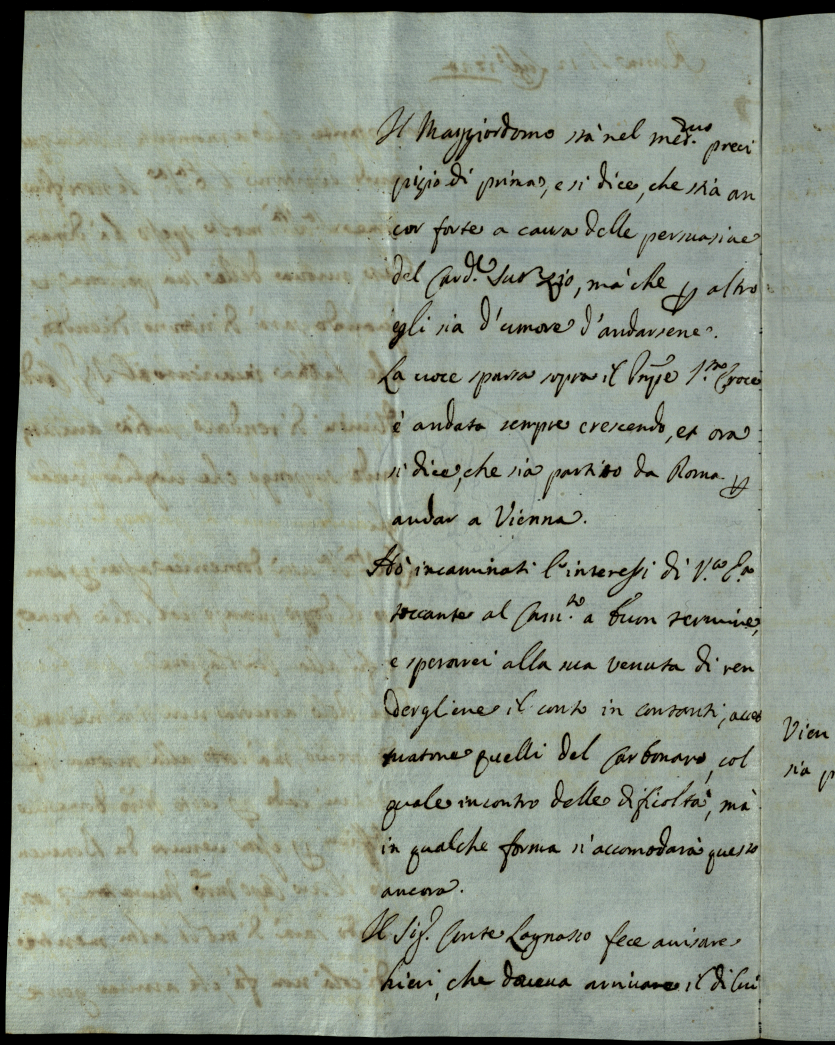 Il Maggiordomo stà nel med.mo preci
pizio di prima, e si dice, che stia an
cor forte a causa delle persuasive
del Card.l mà che altro
egli sia d'umore d'andarsene.
La voce sparsa sopra il Prnpe S.ta Croce
è andata sempre crescendo, et ora
si dice, che sia partito da Roma p
andar a Vienna.
Hò incaminati l'interessi di V.ra E.za
toccante al a buon termine,
e sperarei alla sua venuta di ren
dergliene il conto in contanti, accet
tuatone quelli del Carbonaro, col
quale incontro delle dificoltà, mà
in qualche forma s'accomodarà questo
ancora.
Il Sig.r Conte Lagnasco fece avisare
hieri, che doveva arrivare il di lui
Vien
sia p